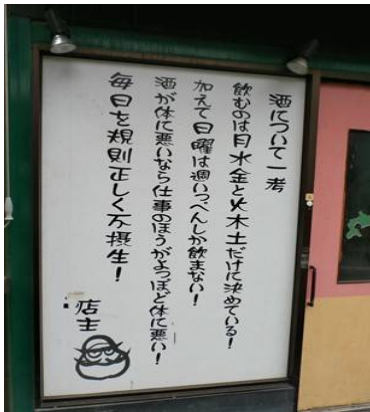 酒について一考
飲むのは月水金と火木土だけに決めている！
加えて日曜は週いっぺんしか飲まない！
酒が体に悪いなら仕事のほうがよっぽど体に悪い！
毎日を規則正しく不摂生！
店主